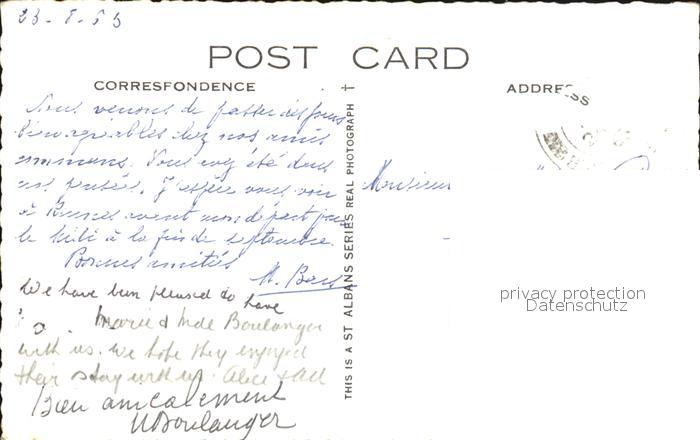 23-8-53
POST CARD
CORRESPONDENCE
ADDRESS
Nous venons de passer des jours
bien agréables chez nos amis
communs. Vous avez été dans
nos pensées. J'espère vous voir
à avant mon départ pour
le à la fin de septembre.
Bonnes amitiés
M.
We have been pleased to have
Marie & Mde Boulanger
with us. We hope they enjoyed
their stay with us. Alice
Bien amicalement
Boulanger
THIS IS A ST ALBANS SERIES REAL PHOTOGRAPH
Monsieur
privacy protection
Datenschutz